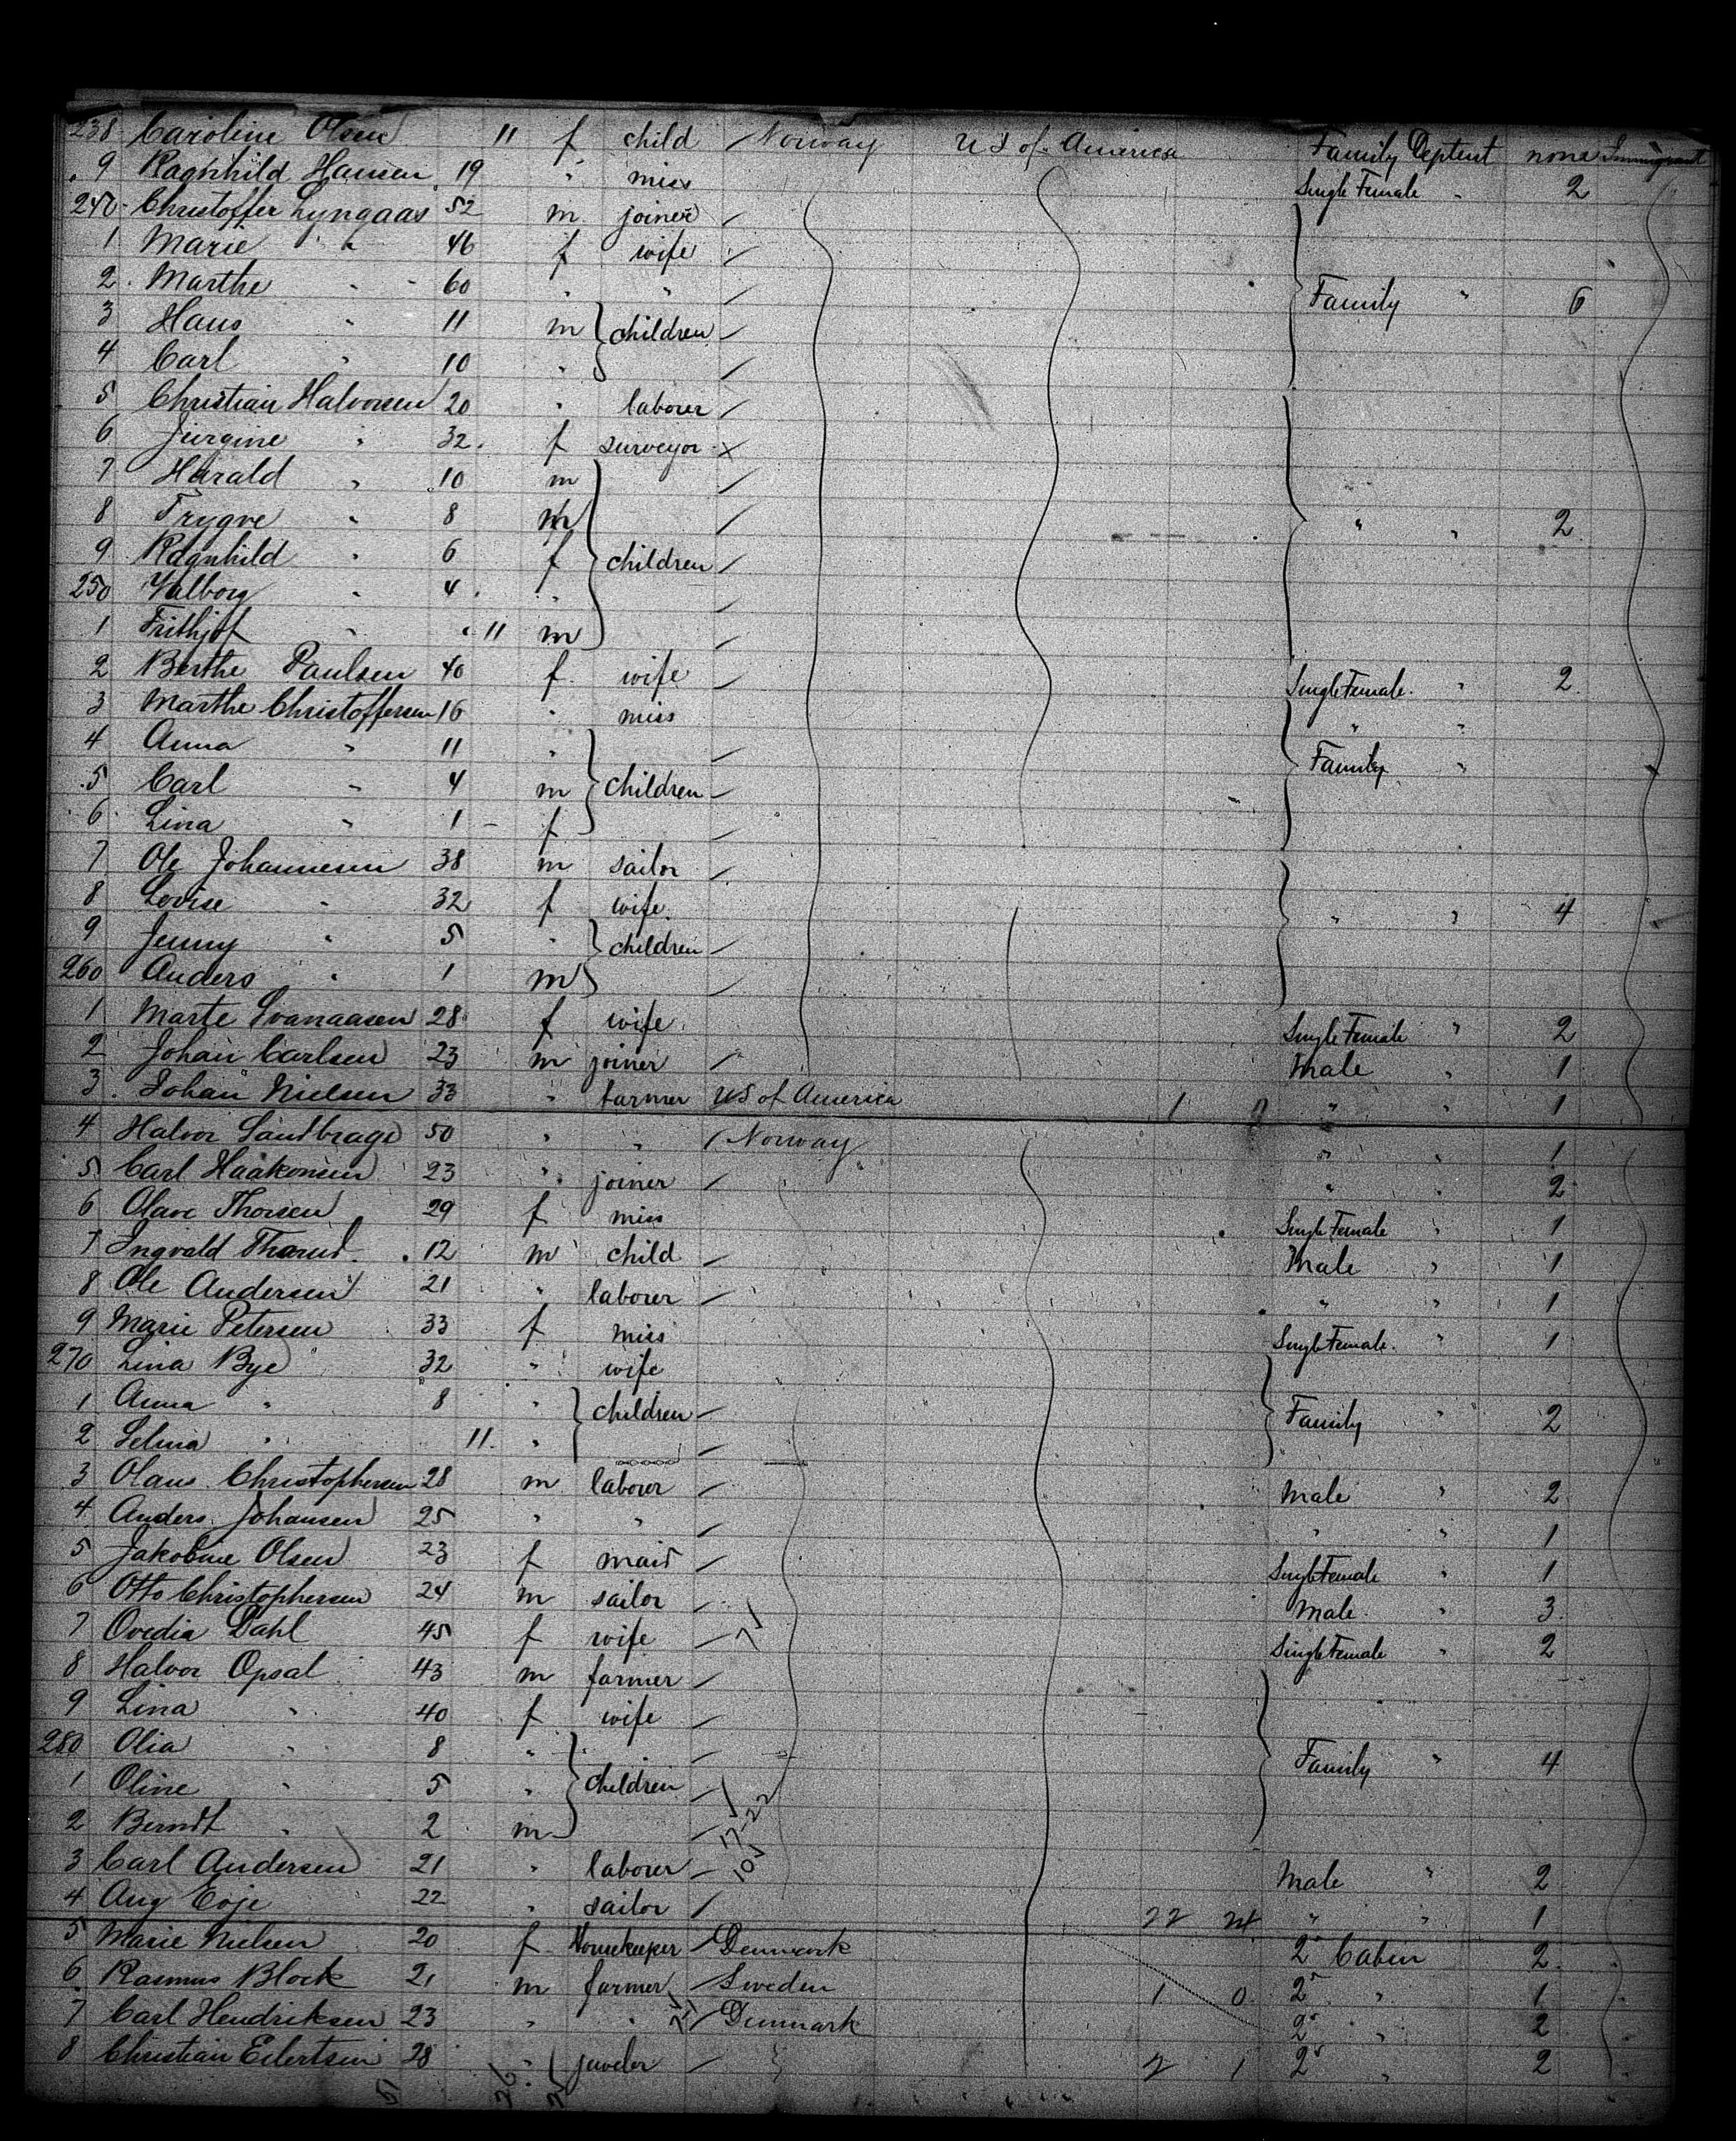 238 Caroline Olsen 11 f child / Norway U S of America Family Deptmt none Immigrant
9 Ragnhild Hansen 19 " miss Single Female " 2
240 Christoffer Lyngaas 52 m joiner /
1 Marie " 46 f wife /
2 Marthe " 60 " " / Family " 6
3 Hans " 11 m children /
4 Carl " 10 " /
5 Christian Halvorsen 20 " laborer /
6 Jurgine " 32 f surveyor x
7 Harald " 10 m /
8 Trygve " 8 m / " " 2
9 Ragnhild " 6 f children /
250 Valborg " 4 " /
1 Frithjof " " 11 m /
2 Berthe Paulsen 40 f wife / Single Female " 2
3 Marthe Christoffersen 16 " miss " "
4 Anna " 11 " / Family "
5 Carl " 4 m children /
6 Lina " 1 f /
7 Ole Johannesen 38 m sailor /
8 Lovise " 32 f wife " " 4
9 Jenny " 5 " children /
260 Anders " 1 m /
1 Marte Svanaasen 28 f wife Single Female " 2
2 Johan Carlsen 23 m joiner / Male " 1
3 Johan Nielsen 33 " farmer US of America 1 0 " " 1
4 Halvor Sandbrage 50 " " / Norway " " 1
5 Carl Haakonsen 23 " joiner / " " 2
6 Olave Thorsen 29 f miss Single Female " 1
7 Ingvald Thorud 12 m child / Male " 1
8 Ole Andersen 21 " laborer / " " 1
9 Marie Petersen 33 f miss Single Female " 1
270 Lina Bye 32 " wife
1 Anna " 8 " children / Family " 2
2 Selma " 11 " /
3 Olaus Christophersen 28 m laborer / Male " 2
4 Anders Johansen 25 " " / " " 1
5 Jakobine Olsen 23 f maid / Single Female " 1
6 Otto Christophersen 24 m sailor / Male " 3
7 Ovedia Dahl 45 f wife / Single Female " 2
8 Halvor Opsal 43 m farmer /
9 Lina " 40 f wife /
280 Olia " 8 " / Family " 4
1 Oline " 5 " children /
2 Berndt " 2 m / 17-22
3 Carl Andersen 21 " laborer / 105 Male " 2
4 Aug Eoje 22 " sailor / 22 24 " " 1
5 Marie Nielsen 20 f Housekeeper / Denmark 2" Cabin 2
6 Rasmus Block 21 m farmer / Sweden 1 0 2" " 1
7 Carl Hendriksen 23 " " / Denmark 2" " 2
8 Christian Eilertsen 28 " juveler / 2 1 2" " 2
51 26 25